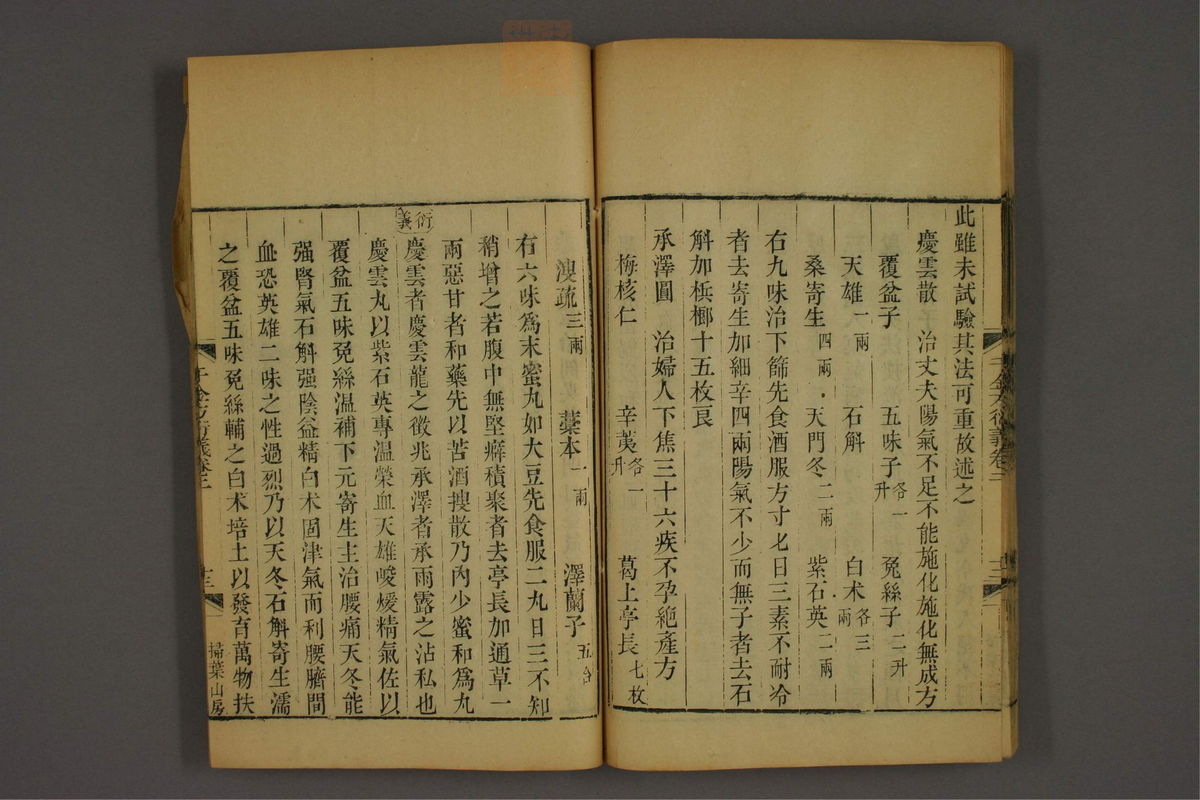 此雖未試驗其法可重故述之
慶雲散 治丈夫陽氣不足不能施化施化無成方
覆盆子 五味子各一升 菟絲子二升
天雄一兩 石斛 白术各三兩
桑寄生四兩 天門冬二兩 紫石英二兩
右九味治下篩先食酒服方寸匕日三素不耐冷
者去寄生加細辛四兩陽氣不少而無子者去石
斛加梹榔十五枚良
承澤圓 治婦人下焦三十六疾不孕絶產方
梅核仁 辛荑各一升 葛上亭長七枚
溲疏三兩 藁本一兩 澤蘭子五合
右六味爲末蜜丸如大豆先食服二丸日三不知
稍增之若腹中無堅癖積聚者去亭長加通草一
兩惡甘者和藥先以苦酒搜散乃內少蜜和爲丸
衍義
慶雲者慶雲龍之徵兆承澤者承雨露之沾私也
慶雲丸以紫石英專温榮血天雄峻煖精氣佐以
覆盆五味菟絲温補下元寄生主治腰痛天冬能
强腎氣石斛强陰益精白术固津氣而利腰臍間
血恐英雄二味之性過烈乃以天冬石斛寄生濡
之覆盆五味菟絲輔之白术培土以發育萬物扶
千金方衍義卷二
十三
掃葉山房